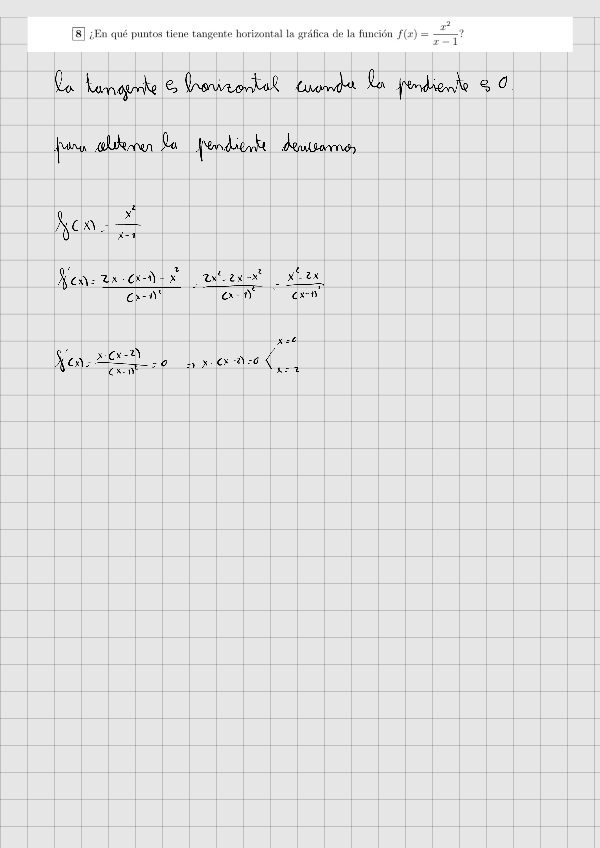 8 ¿En qué puntos tiene tangente horizontal la gráfica de la función f(x) = x²/(x − 1)?
la tangente es horizontal cuando la pendiente es 0.
para obtener la pendiente derivamos
f(x) = x²/(x-1)
f'(x) = (2x·(x-1) - x²)/(x-1)² = (2x² - 2x - x²)/(x-1)² = (x² - 2x)/(x-1)²
f'(x) = x·(x-2)/(x-1)² = 0 ⇒ x·(x-2) = 0 < x=0
x=2